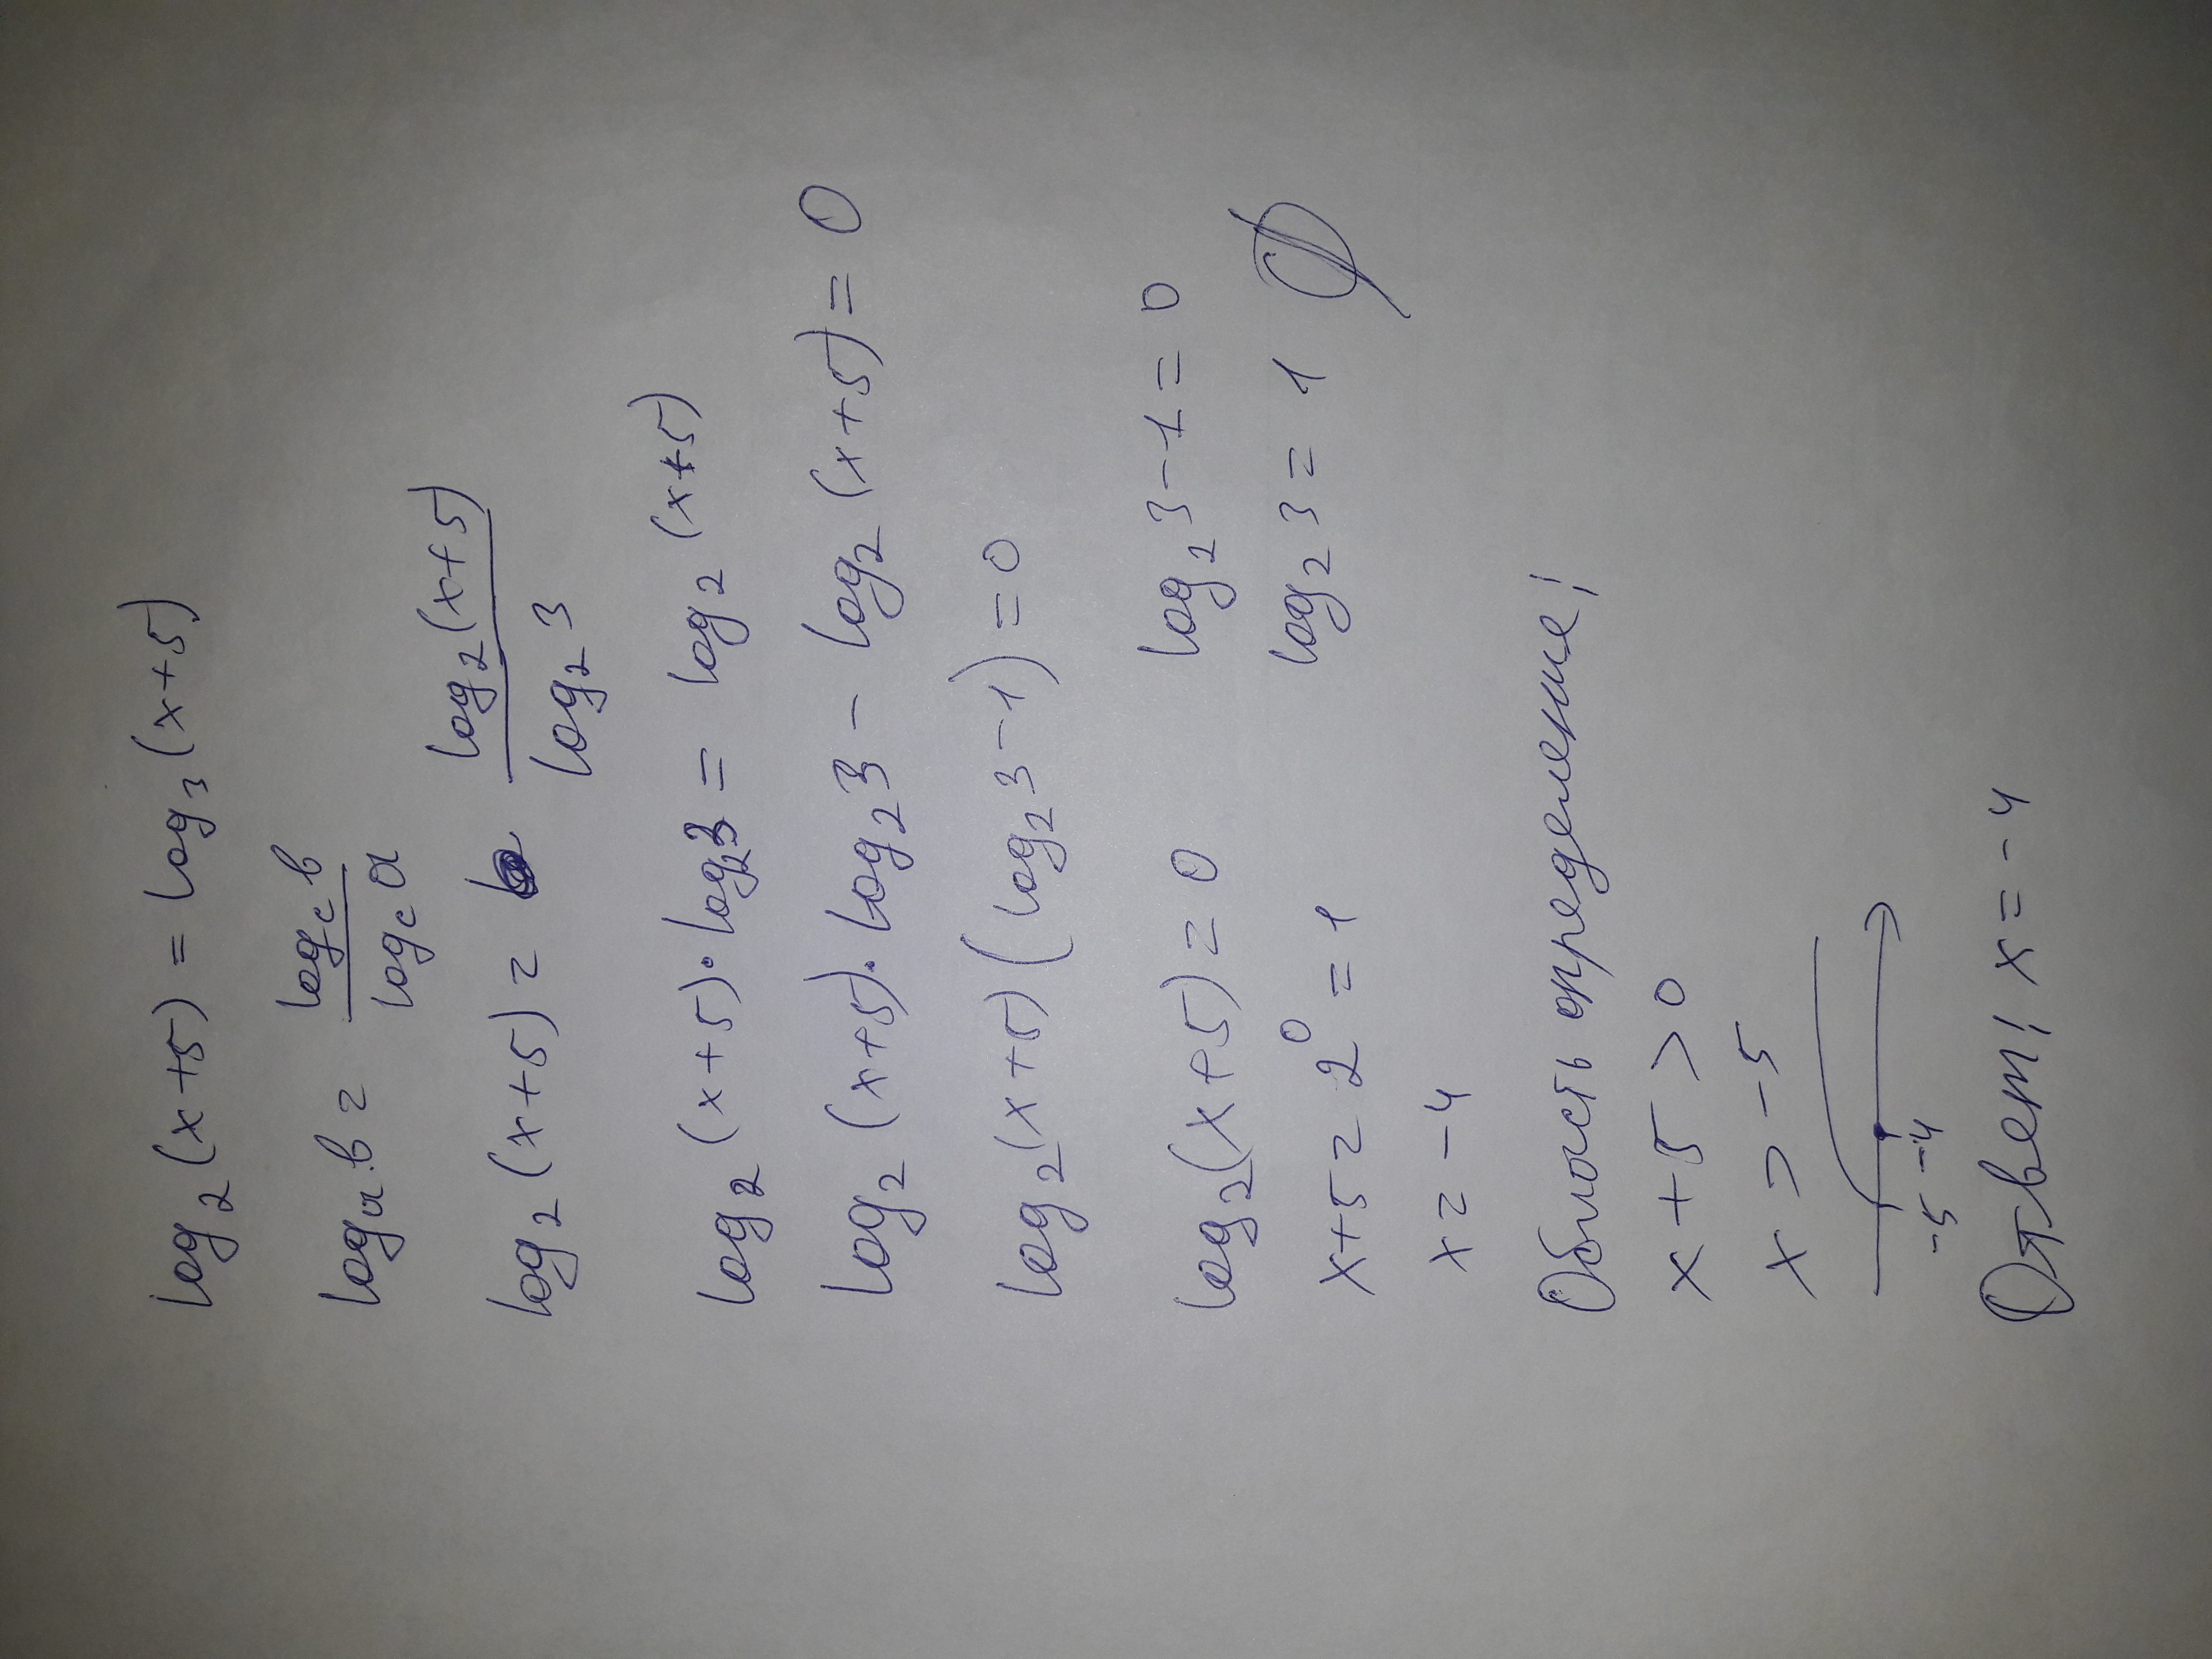 log₂(x+5) = log₃(x+5)
logₐb = log_c b / log_c a
log₂(x+5) = log₂(x+5) / log₂3
log₂(x+5)·log₂3 = log₂(x+5)
log₂(x+5)·log₂3 - log₂(x+5) = 0
log₂(x+5)(log₂3-1) = 0
log₂(x+5) = 0 log₂3-1 = 0
x+5 = 2⁰ = 1 log₂3 = 1 ∅
x = -4
Область определение:
x+5 > 0
x > -5
-5 -4
Ответ: x = -4